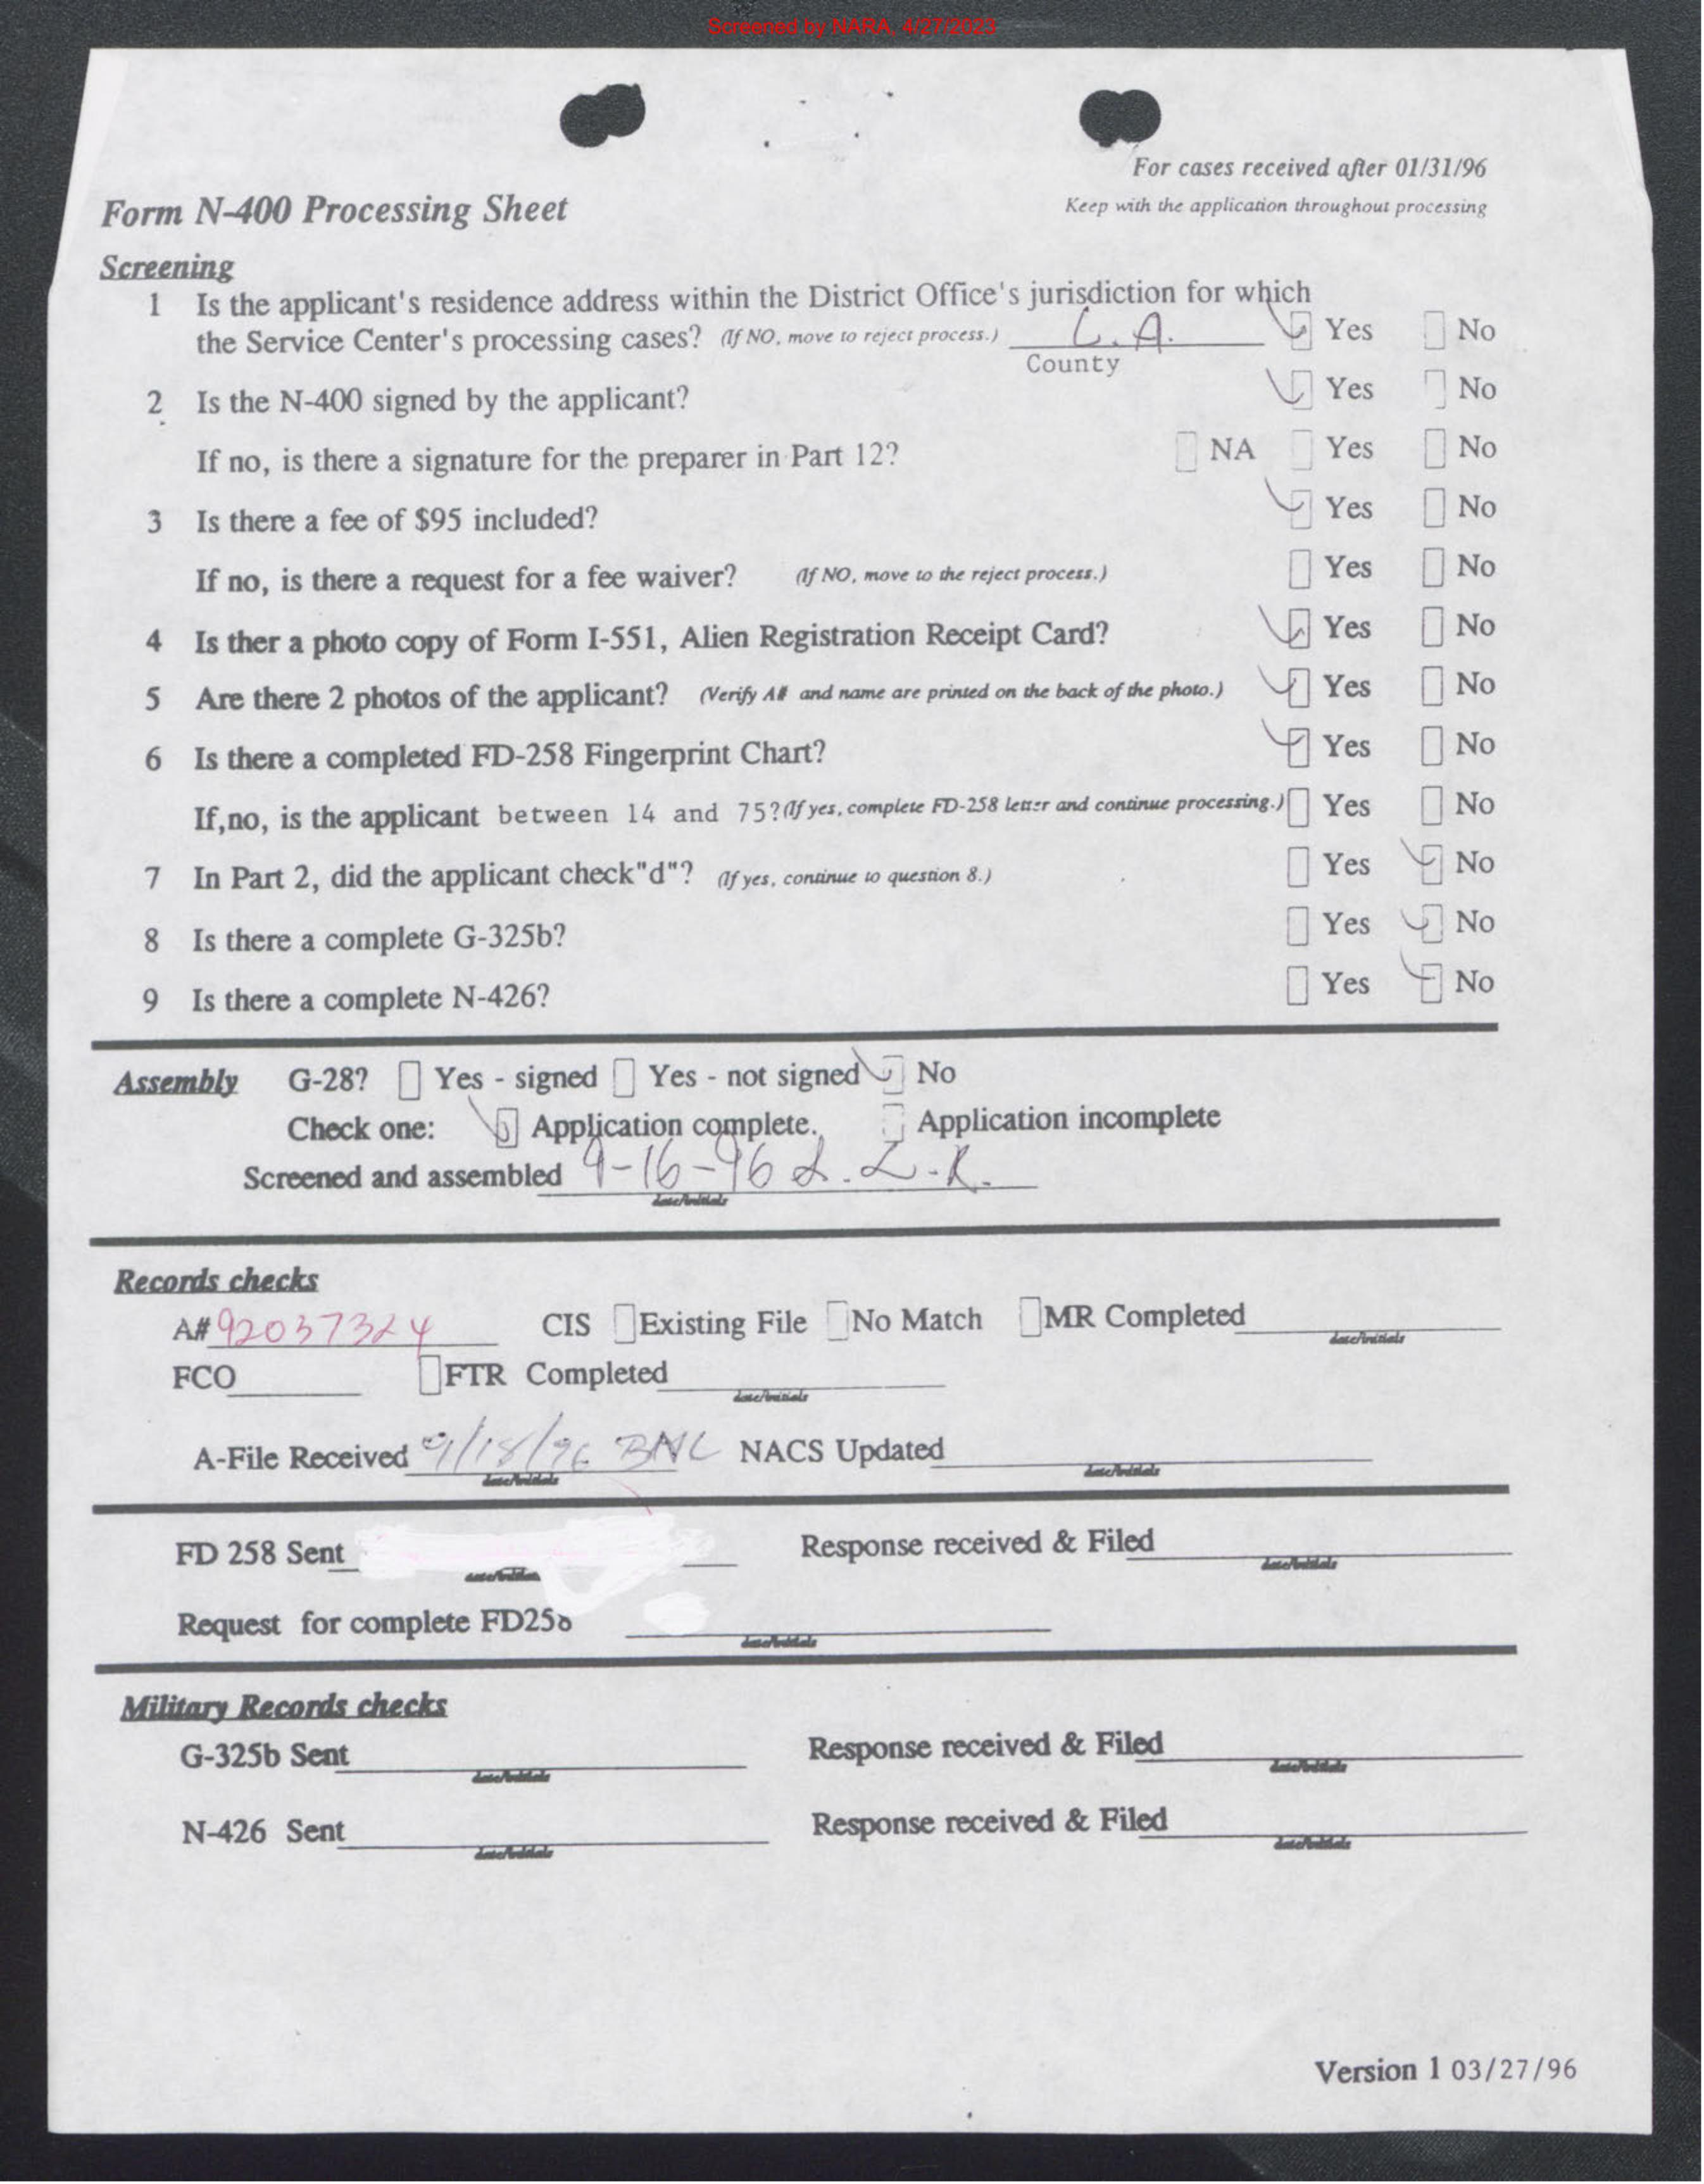 Screened by NARA, 4/27/2023
For cases received after 01/31/96
Form N-400 Processing Sheet
Keep with the application throughout processing
Screening
1 Is the applicant's residence address within the District Office's jurisdiction for which
the Service Center's processing cases? (If NO, move to reject process.) L.A. Yes No
County
2 Is the N-400 signed by the applicant? Yes No
If no, is there a signature for the preparer in Part 12? NA Yes No
3 Is there a fee of $95 included? Yes No
If no, is there a request for a fee waiver? (If NO, move to the reject process.) Yes No
4 Is ther a photo copy of Form I-551, Alien Registration Receipt Card? Yes No
5 Are there 2 photos of the applicant? (Verify A# and name are printed on the back of the photo.) Yes No
6 Is there a completed FD-258 Fingerprint Chart? Yes No
If,no, is the applicant between 14 and 75?(If yes, complete FD-258 letter and continue processing.) Yes No
7 In Part 2, did the applicant check"d"? (If yes, continue to question 8.) Yes No
8 Is there a complete G-325b? Yes No
9 Is there a complete N-426? Yes No
Assembly G-28? Yes - signed Yes - not signed No
Check one: Application complete. Application incomplete
Screened and assembled 9-16-96 L.L.R.
date/initials
Records checks
A# 92037324 CIS Existing File No Match MR Completed
date/initials
FCO FTR Completed
date/initials
A-File Received 9/18/96 BNL NACS Updated
date/initials date/initials
FD 258 Sent Response received & Filed
date/initials date/initials
Request for complete FD258
date/initials
Military Records checks
G-325b Sent Response received & Filed
date/initials date/initials
N-426 Sent Response received & Filed
date/initials date/initials
Version 1 03/27/96